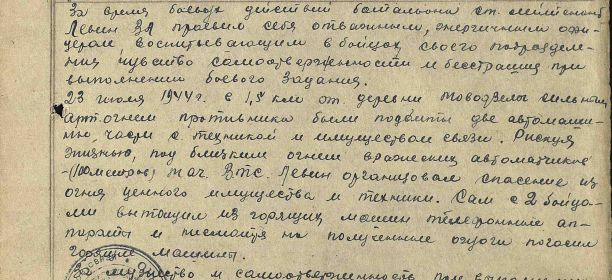 За время боевых действий батальона ст. лейтенант
Левин ЗА проявил себя отважным, энергичным офи-
цером, воспитывающим в бойцах своего подразделе-
ния чувство самоотверженности и бесстрашия при
выполнении боевого задания.
23 июля 1944г. в 1,5 км от деревни сильным
артогнем противника были подбиты две автомаши-
ны, части с техникой и имуществом связи. Рискуя
жизнью, под близким огнем вражеских автоматчиков
нач. ВТС. Левин организовал спасение из
огня ценного имущества и техники. Сам с 2 бойца-
ми вытащил из горящих машин телефонные ап-
параты и несмотря на полученные ожоги погасил
горящие машины.
За мужество и самоотверженность при